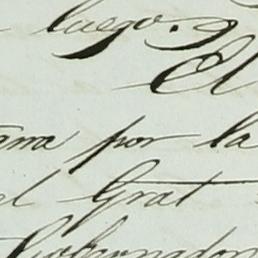 luego.
El
por la
el Gral
Gobernador